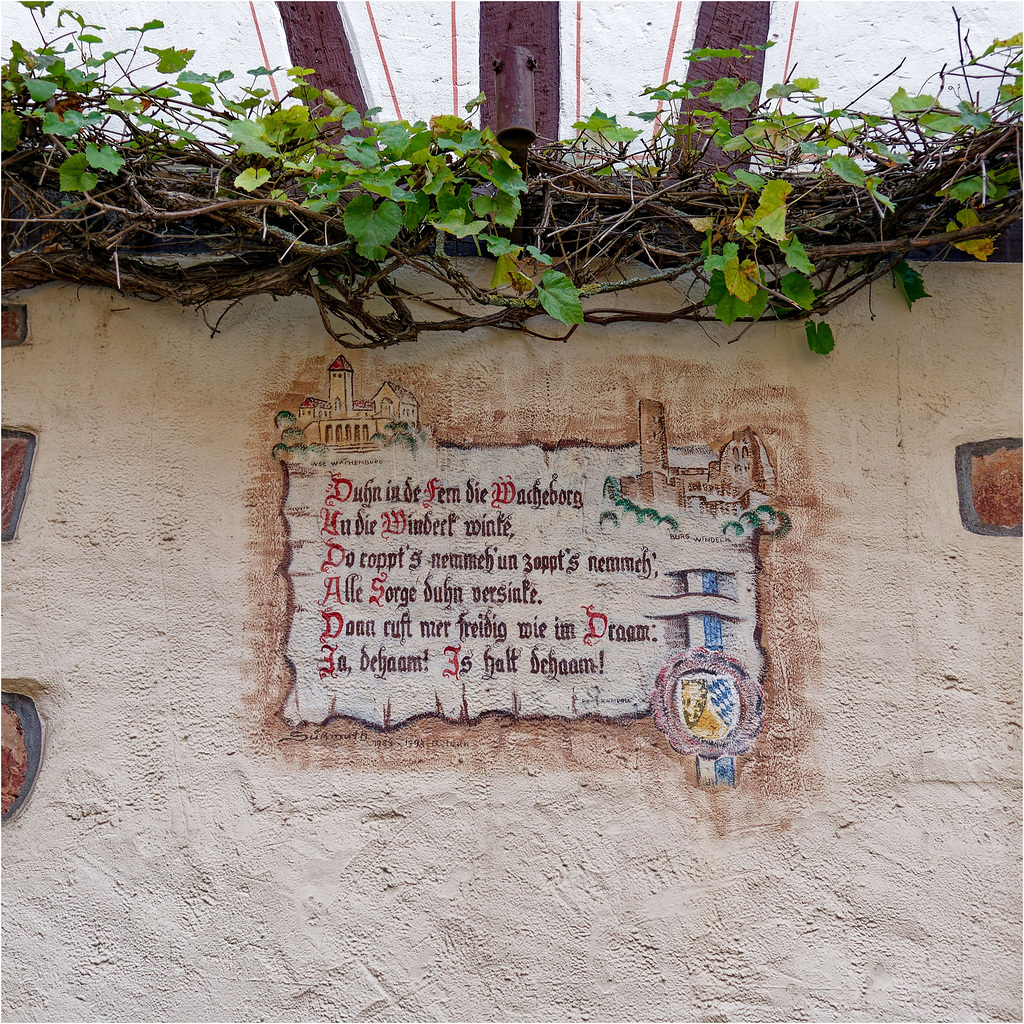 WSC WACHENBURG
BURG WINDECK
Duhn in de Fern die Wacheborg
Un die Windeck winke,
Do roppt's nemmeh' un zoppt's nemmeh',
Alle Sorge duhn versinke.
Dann ruft mer freidig wie im Draam:
Ja, dehaam! Is halt dehaam!
Süßmuth